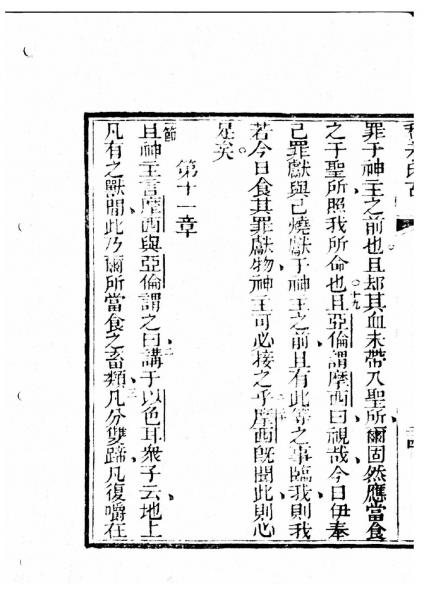 罪于神主之前也且却其血未帶入聖所爾固然應當食
之于聖所照我所命也且亞倫謂摩西曰視哉今日伊奉
己罪獻與己燒獻于神主之前且有此等之事臨我則我
若今日食其罪獻物神主可必接之乎摩西旣聞此則心
是矣
第十一章
節
且神主言摩西與亞倫謂之曰講于以色耳衆子云地上
凡有之獸間此乃爾所當食之畜類凡分雙蹄凡復嚼在
十九
二十
二
三